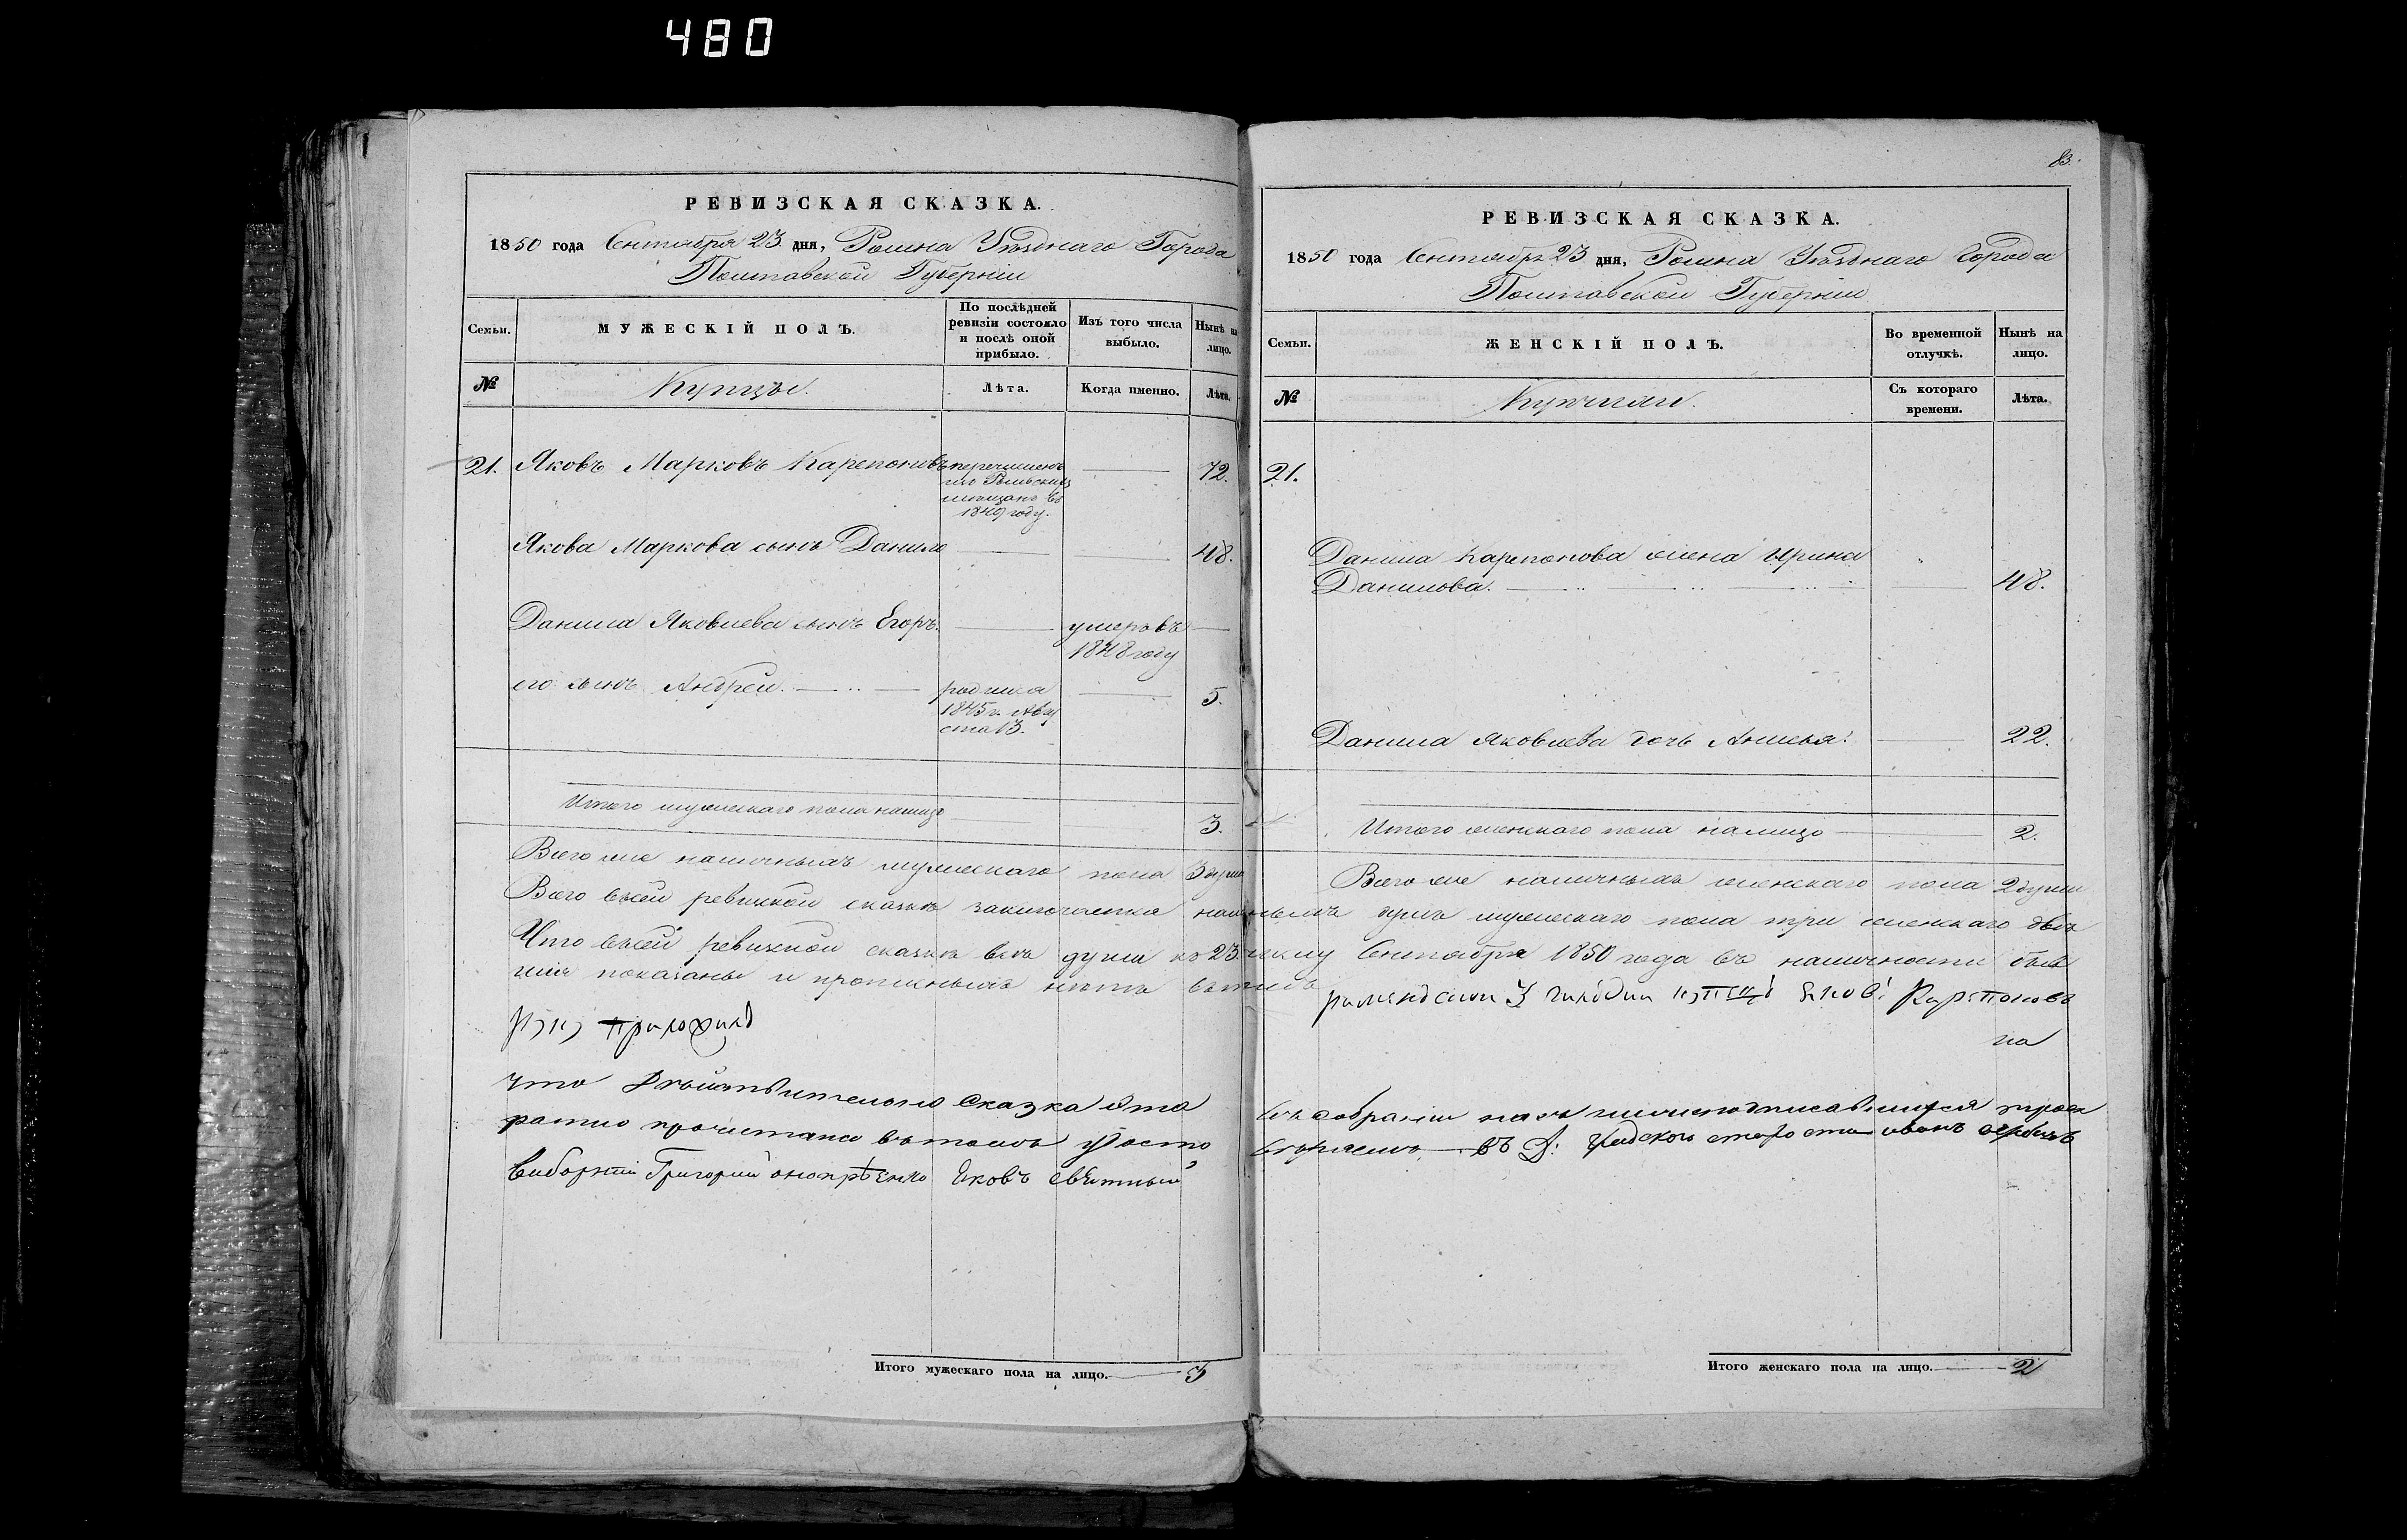 480
83.
РЕВИЗСКАЯ СКАЗКА.
1850 года Сентября 23 дня, Ромна Уѣзднаго Города
Полтавской Губерніи
Семьи.
МУЖЕСКІЙ ПОЛЪ.
По послѣдней ревизіи состояло и послѣ оной прибыло.
Изъ того числа выбыло.
Нынѣ на лицо.
№
Купцы.
Лѣта.
Когда именно.
Лѣта.
21. Яковъ Марковъ Карепоновъ перечисленъ 72.
мѣщанъ въ
1849 году.
Якова Маркова сынъ Данило 48.
Данила Яковлева сынъ Егоръ. умеръ въ
1848 году
его сынъ Андрей. родился 5.
1845 г. Авгу
ста 13.
Итого мужескаго пола налицо 3.
Всего же наличныхъ мужескаго пола 3 души
РЕВИЗСКАЯ СКАЗКА.
1850 года Сентября 23 дня, Ромна Уѣзднаго Города
Полтавской Губерніи
Семьи.
ЖЕНСКІЙ ПОЛЪ.
Во временной отлучкѣ.
Нынѣ на лицо.
№
Купчихи.
Съ котораго времени.
Лѣта.
21.
Данила Карепонова жена Ирина
Данилова. 48.
Данила Яковлева дочь 22.
Итого женскаго пола налицо 2.
Всего же наличныхъ женскаго пола 2 души
Всего в сей ревизской сказкѣ заключается наличныхъ душъ мужескаго пола три женскаго двѣ
Что в сей ревизской сказкѣ всѣ души по 23 число Сентября 1850 года въ наличности
показаны и прописныхъ нѣтъ въ томъ Карепоновъ
руку приложилъ
что дѣйствительно сказка ета въ собраніи насъ
прочитана въ томъ градской староста иванъ
Виборній Григорий Яковъ
Итого мужескаго пола на лицо. 3
Итого женскаго пола на лицо. 2